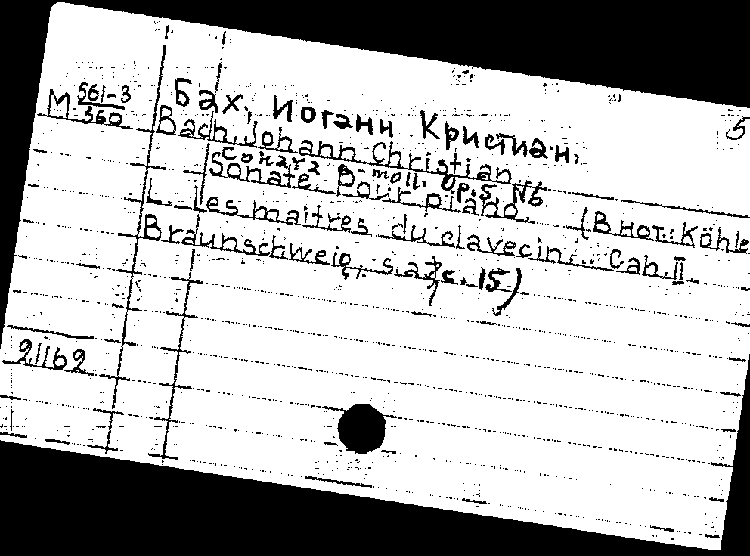 M 561-3
360
5
Бах, Иоганн Кристиан.
Bach, Johann Christian
Соната c-moll. Op.5 №6
Sonate. Pour piano.
(В нот.: Köhle
L. Les maitres du clavecin... Cah. II
Braunschweig, s.a., c. 15)
21162